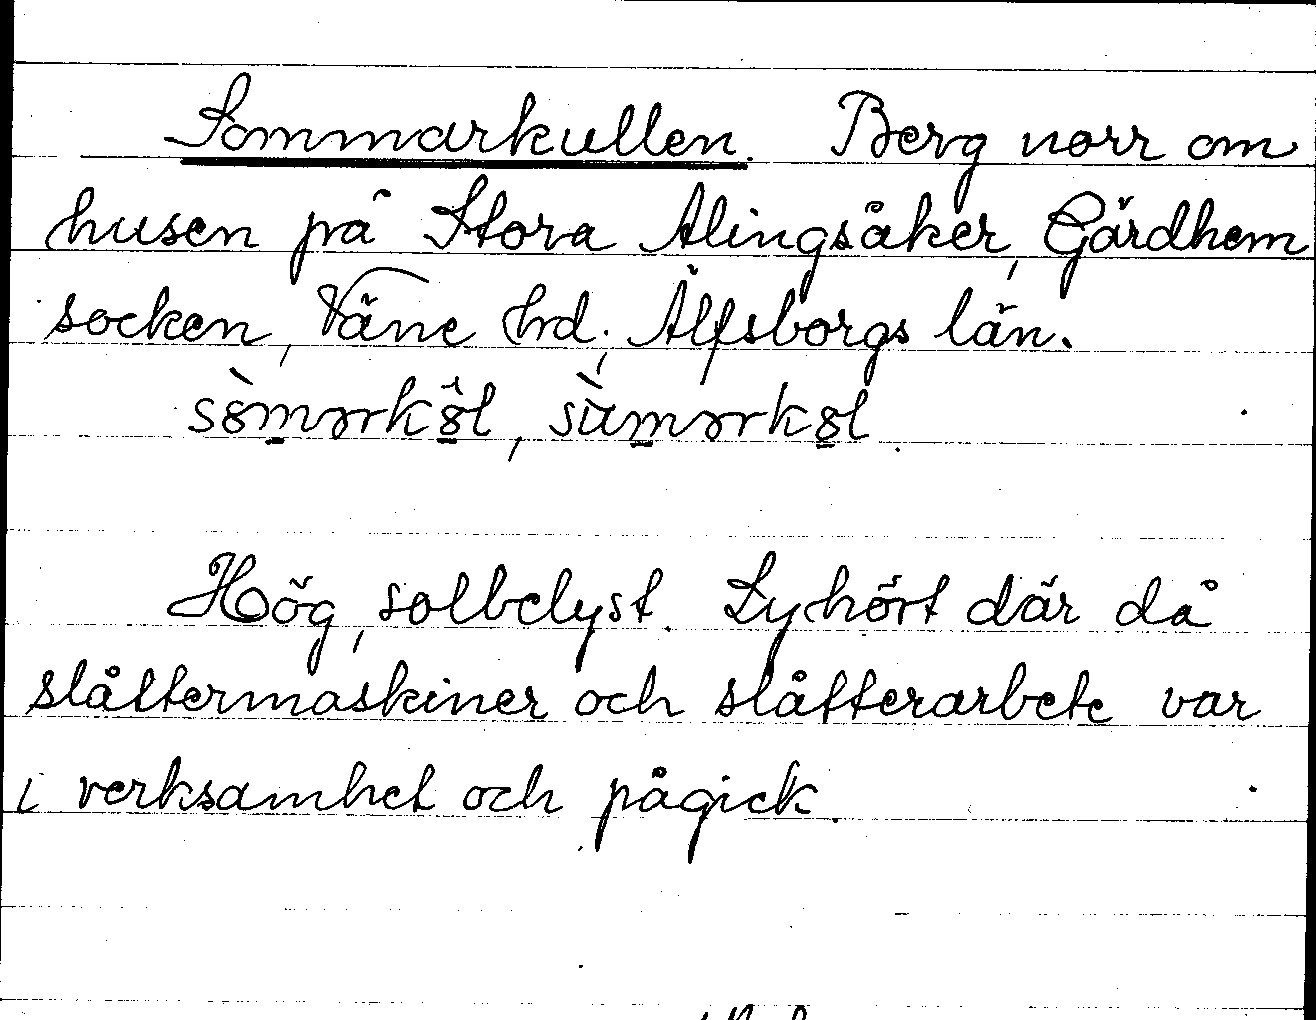 Sommarkullen. Berg norr om
husen på Stora Alingsåker, Gärdhem
socken, Väne hd, Älfsborgs län.
Hög, solbelyst. Lyhört där då
slåttermaskiner och slåtterarbete var
i verksamhet och pågick.